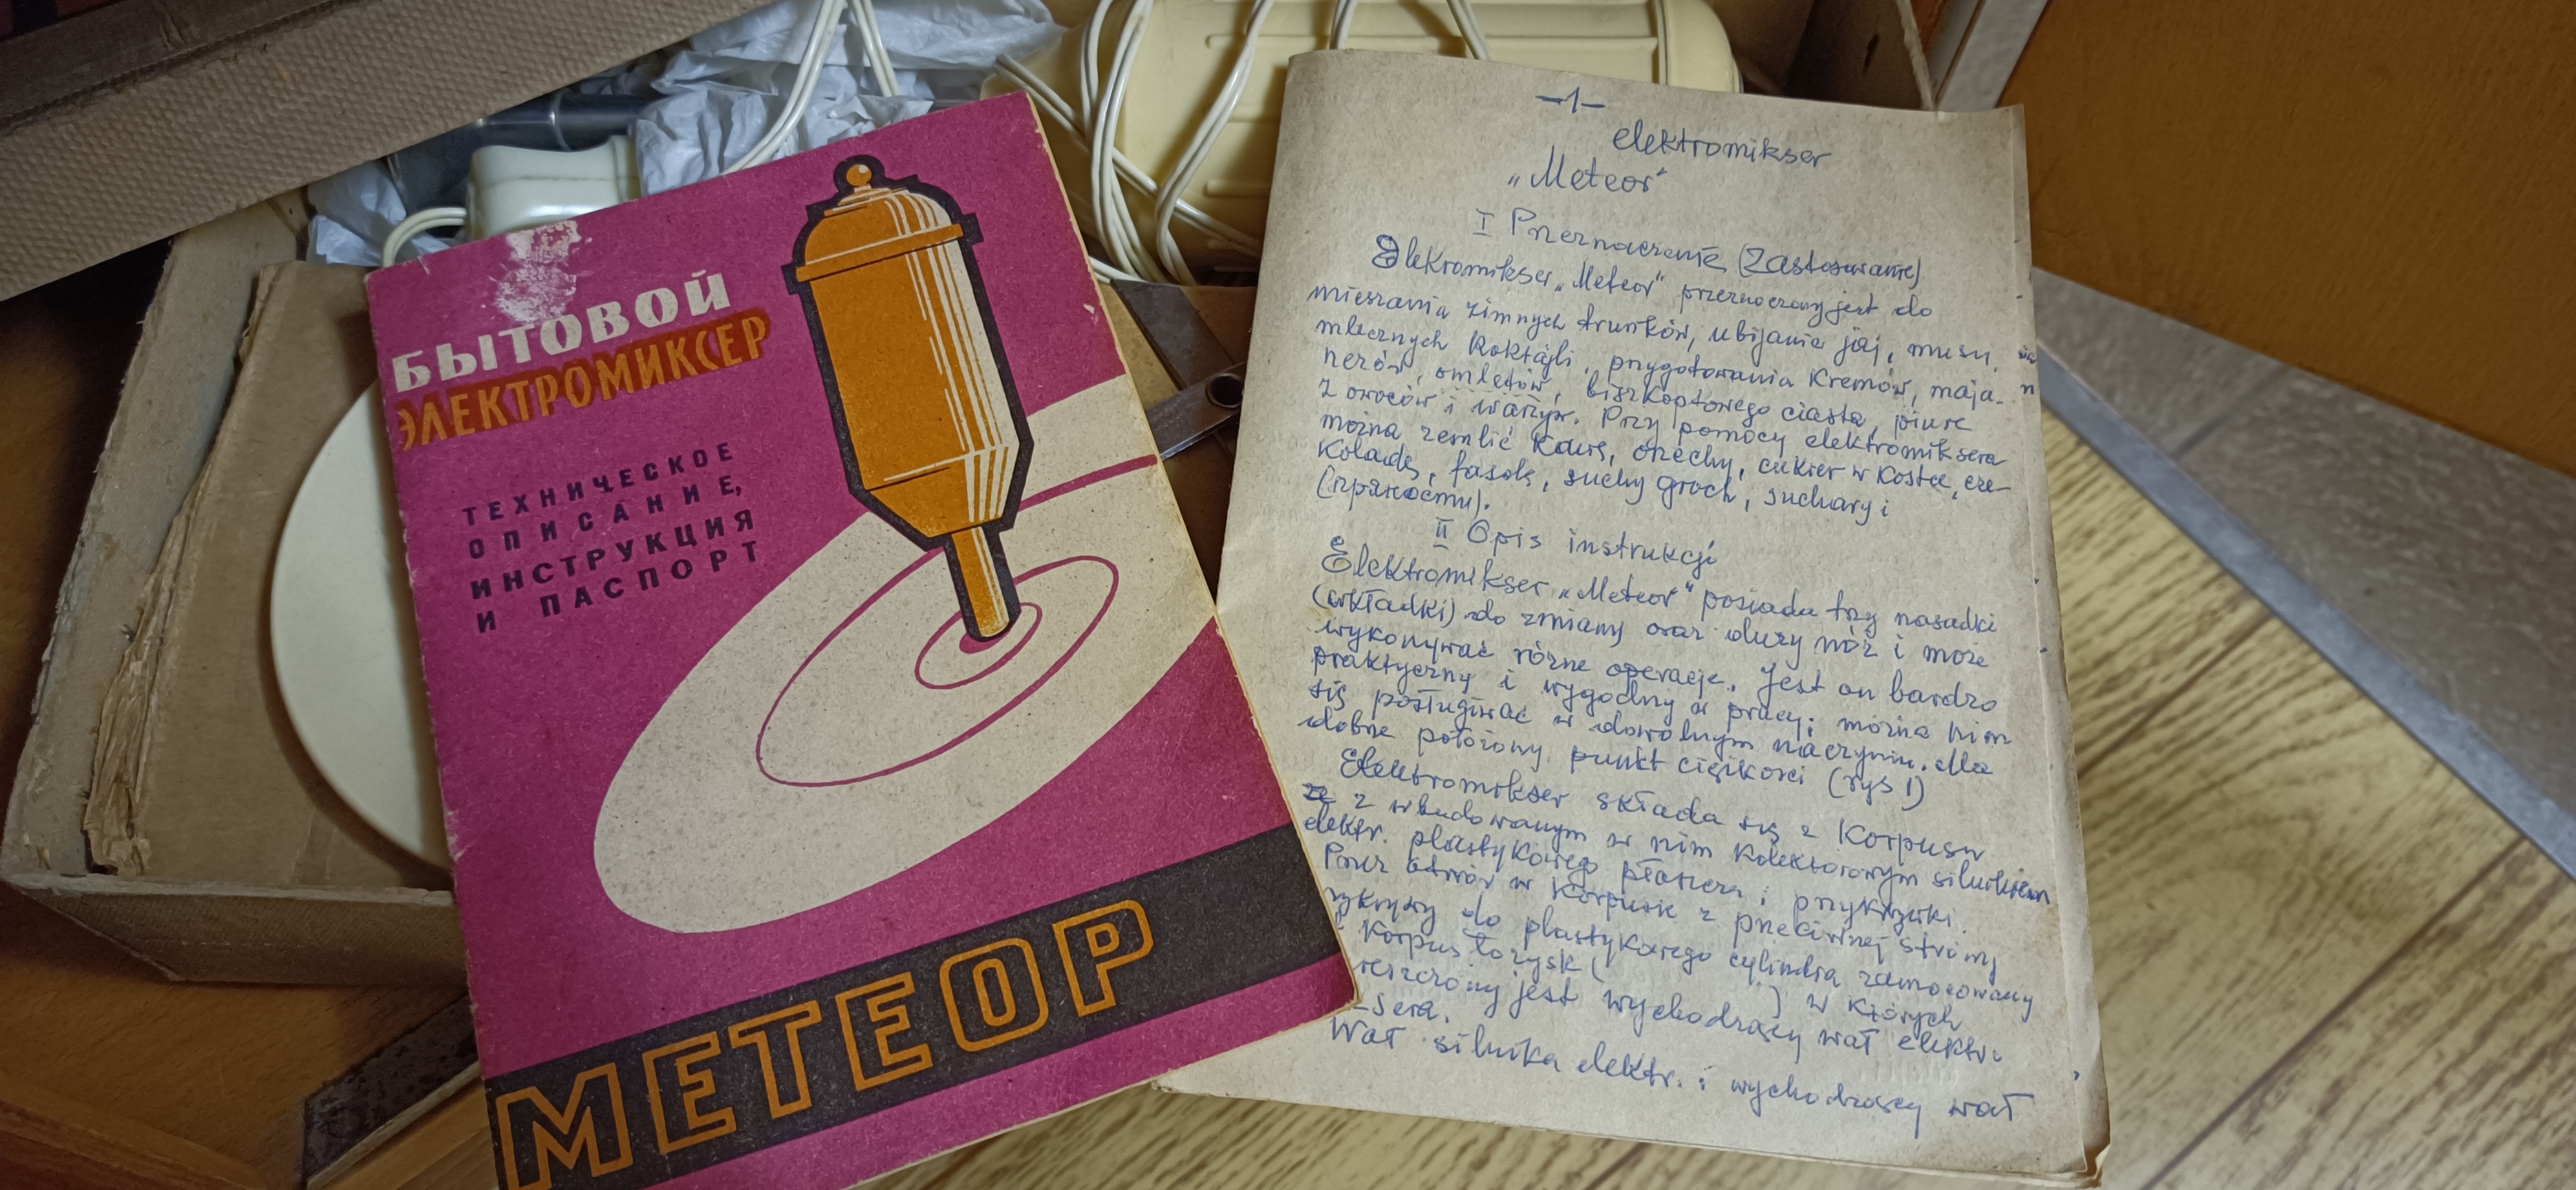 БЫТОВОЙ
ЭЛЕКТРОМИКСЕР
ТЕХНИЧЕСКОЕ
ОПИСАНИЕ,
ИНСТРУКЦИЯ
И ПАСПОРТ
МЕТЕОР
-1-
elektromikser
„Meteor"
I Przeznaczenie (Zastosowanie)
Elekromikser „Meteor" przeznaczony jest do
mieszania zimnych trunków, ubijania jaj, musu,
mlecznych koktajli, przygotowania kremów, maja-
nezów, omletów, biszkoptowego ciasta, piure
z owoców i warzyw. Przy pomocy elektromiksera
można zemlić kawę, orzechy, cukier w kostce, cze-
koladę, fasolę, suchy groch, suchary i
(пряности).
II Opis instrukcji
Elektromikser „Meteor" posiada trzy nasadki
(wkładki) do zmiany oraz duży nóż i może
wykonywać różne operacje. Jest on bardzo
praktyczny i wygodny w pracy; można nim
się posługiwać w dowolnym naczyniu. Ma
dobrze położony punkt ciężkości (rys 1)
Elektromikser składa się z korpusu
z wbudowanym w nim kolektorowym silnikiem
elektr. plastykowego płaszcza i przykrywki.
Przez otwór w korpusie z przeciwnej strony
pokrywy do plastykowego cylindra zamocowany
korpus łożysk ( ) w których
jest wychodzący wał elektr.
-sera.
Wał silnika elektr. i wychodzący wał